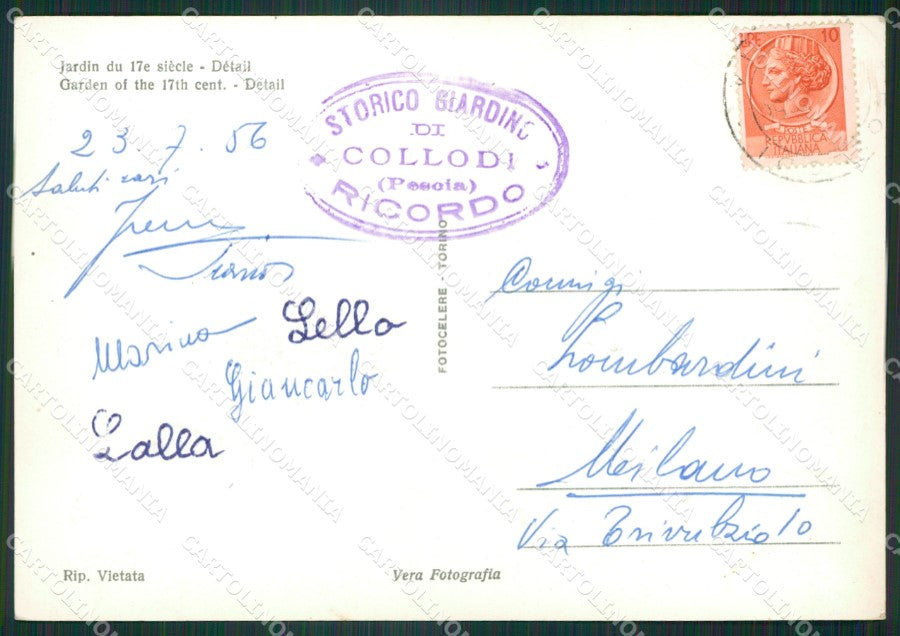 Jardin du 17e siècle - Détail
Garden of the 17th cent. - Détail
STORICO GIARDINO
DI
COLLODI
(Pescia)
RICORDO
LIRE 10
REPUBBLICA
ITALIANA
23.7.56
Saluti cari
Marina
Lello
Giancarlo
Lalla
FOTOCELERE - TORINO
Coniugi
Lombardini
Milano
Via Trivulzio 10
Rip. Vietata
Vera Fotografia
CARTOLINOMANIA